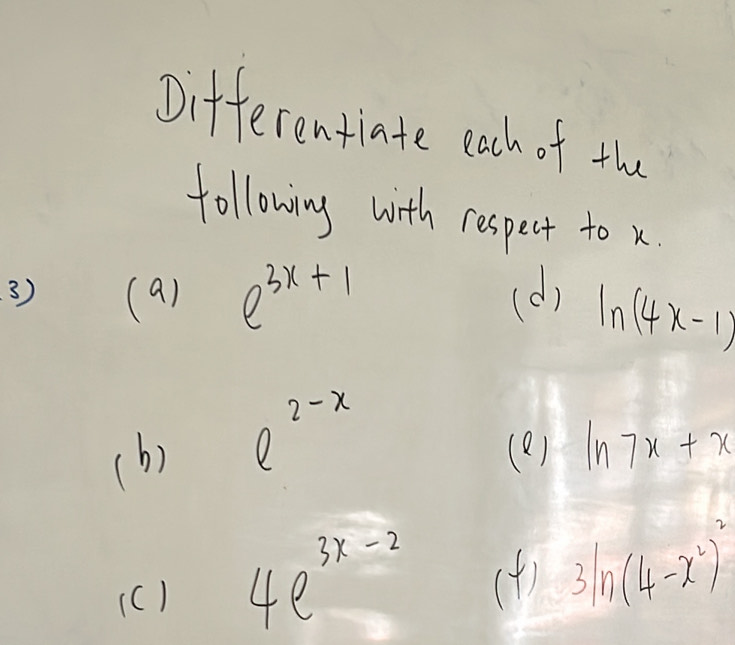 Differentiate each of the
following with respect to x.
3) (a) e^{3x+1} (d) ln(4x-1)
(b) e^{2-x} (e) ln 7x + x
(c) 4e^{3x-2} (f) 3ln(4-x²)²